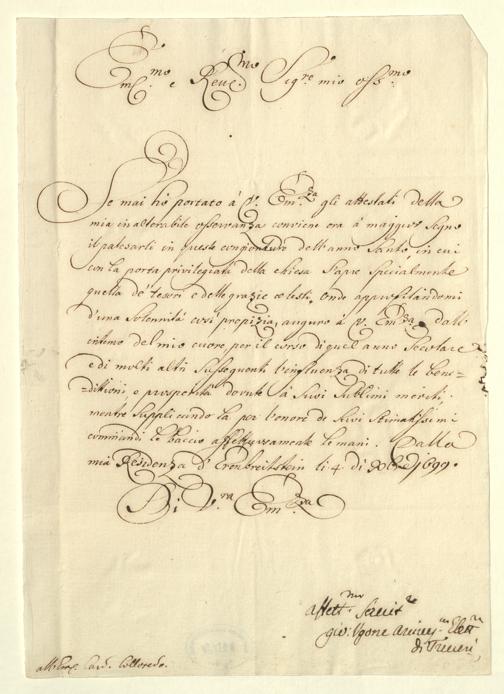 Em.^mo e Reue.^mo Sig.^re mio oss.^mo
Se mai hò portato à V. Em.^za gli attestati della
mia inalterabile osseruanza conviene ora à maggior segno
il palesarli in queste congionture dell'anno Santo, in cui
con la porta privilegiati della chiesa s'apre specialmente
quella de' tesori e delle grazie celesti. Onde approfitandomi
d'una solennità così propizia, auguro à V. Em.^za, dall'
intimo del mio cuore per il corso di quel anno Secolare
e di molti altri sussequenti l'influenza di tutte le bene=
=dittioni, e prosperità dovute à Suoi Sublimi meriti.
mentre supplicandola per l'onore de Suoi Stimatissimi
commandi le baccio affettuosamente le mani. Dalla
mia Residenza d'Erenbreitstein li 4. di Xbre 1699.
Di V.^ra Em.^za
affett.^mo Seruit.^re
Gio: Ugone Arciues.^uo Elett.^re
di Treueri,
all Em.^o Card. Colloredo.